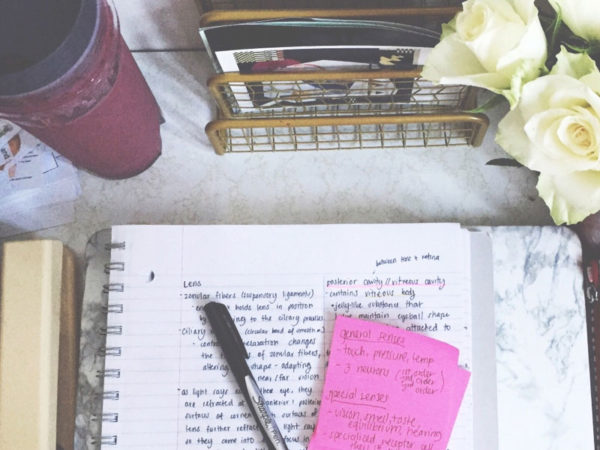 between lens & retina
Lens
- zonular fibers (suspensory ligaments)
holds lens in position
by to the ciliary process
ciliary (circular band of smooth m
relaxation changes
the of zonular fibers,
altering shape - adapting
near/far vision
- as light rays the eye, they
are refracted at anterior + posterior
surfaces of cornea surfaces of
lens further refract light rays
so they come into focus in
posterior cavity/vitreous cavity
- contains vitreous body
• jelly-like substance that
maintain eyeball shape
attached to
general senses
- touch, pressure, temp
- 3 neurons
1st order
2nd order
3rd order
special senses
- vision, smell, taste,
equilibrium, hearing
- specialized receptor cell
Sharpie. Pen